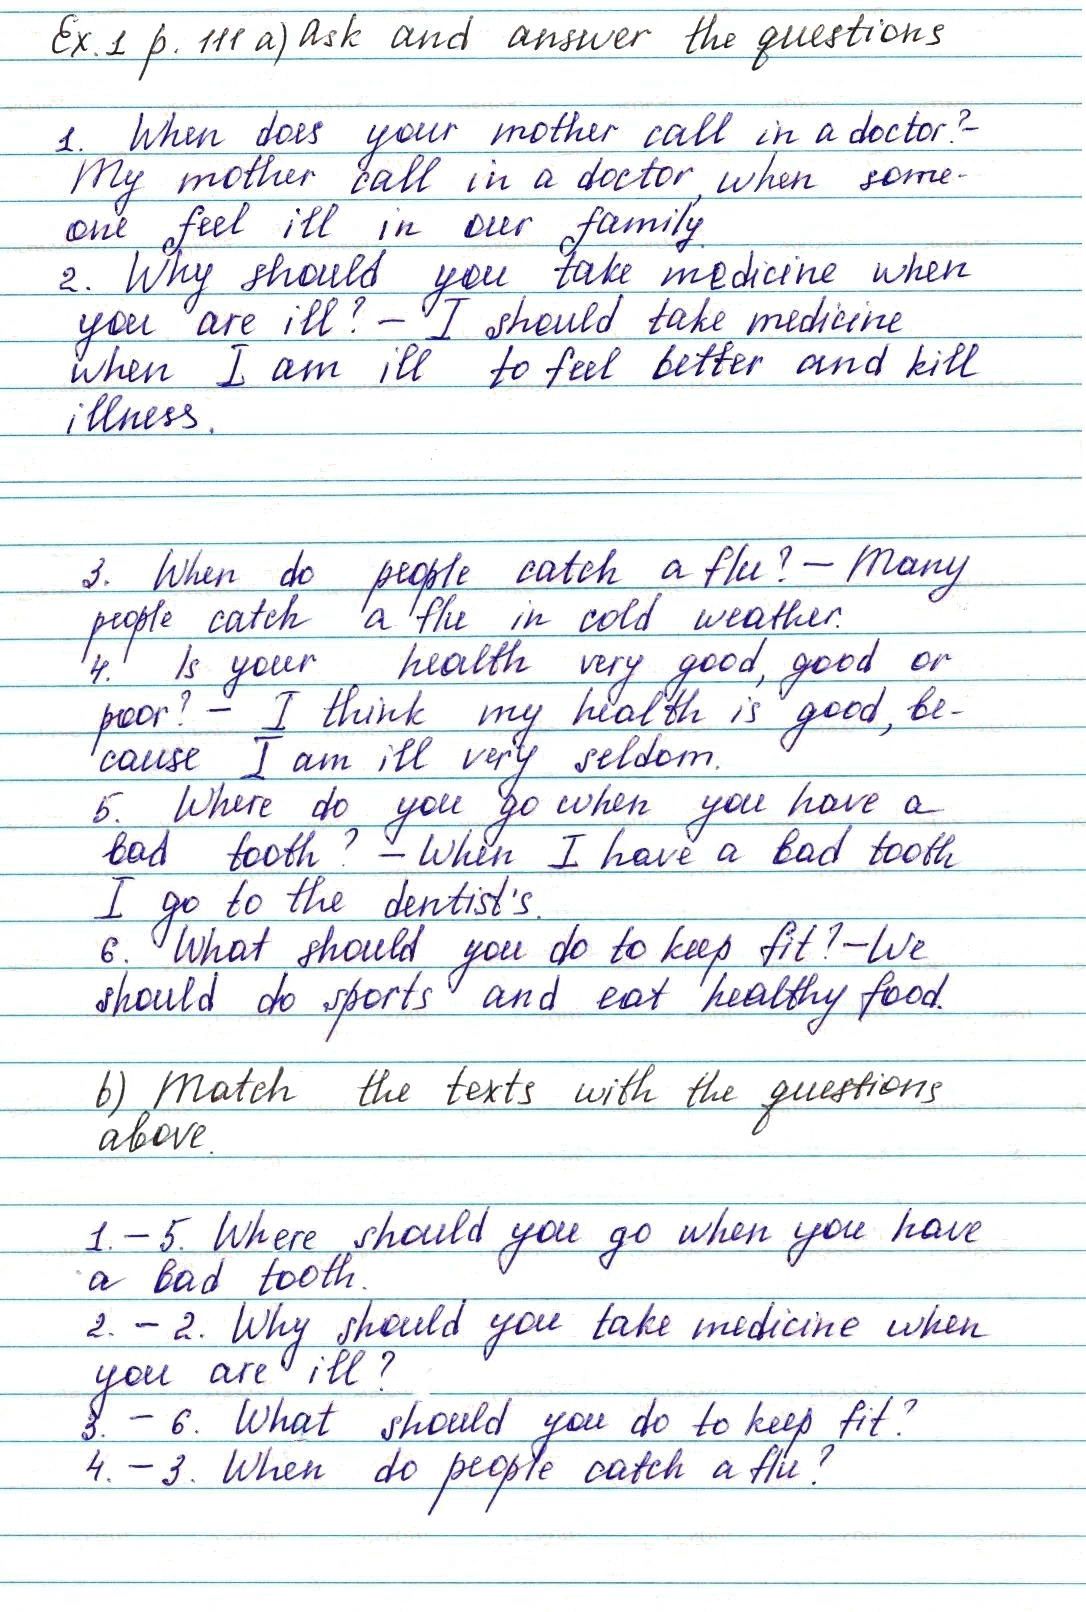 Ex. 1 p. 111 a) Ask and answer the questions
1. When does your mother call in a doctor? -
My mother call in a doctor, when some-
one feel ill in our family.
2. Why should you take medicine when
you are ill? - I should take medicine
when I am ill to feel better and kill
illness.
3. When do people catch a flu? - Many
people catch a flu in cold weather.
4. Is your health very good, good or
poor? - I think my health is good, be-
cause I am ill very seldom.
5. Where do you go when you have a
bad tooth? - When I have a bad tooth
I go to the dentist's.
6. What should you do to keep fit? - We
should do sports and eat healthy food.
b) Match the texts with the questions
above.
1. - 5. Where should you go when you have
a bad tooth.
2. - 2. Why should you take medicine when
you are ill?
3. - 6. What should you do to keep fit?
4. - 3. When do people catch a flu?